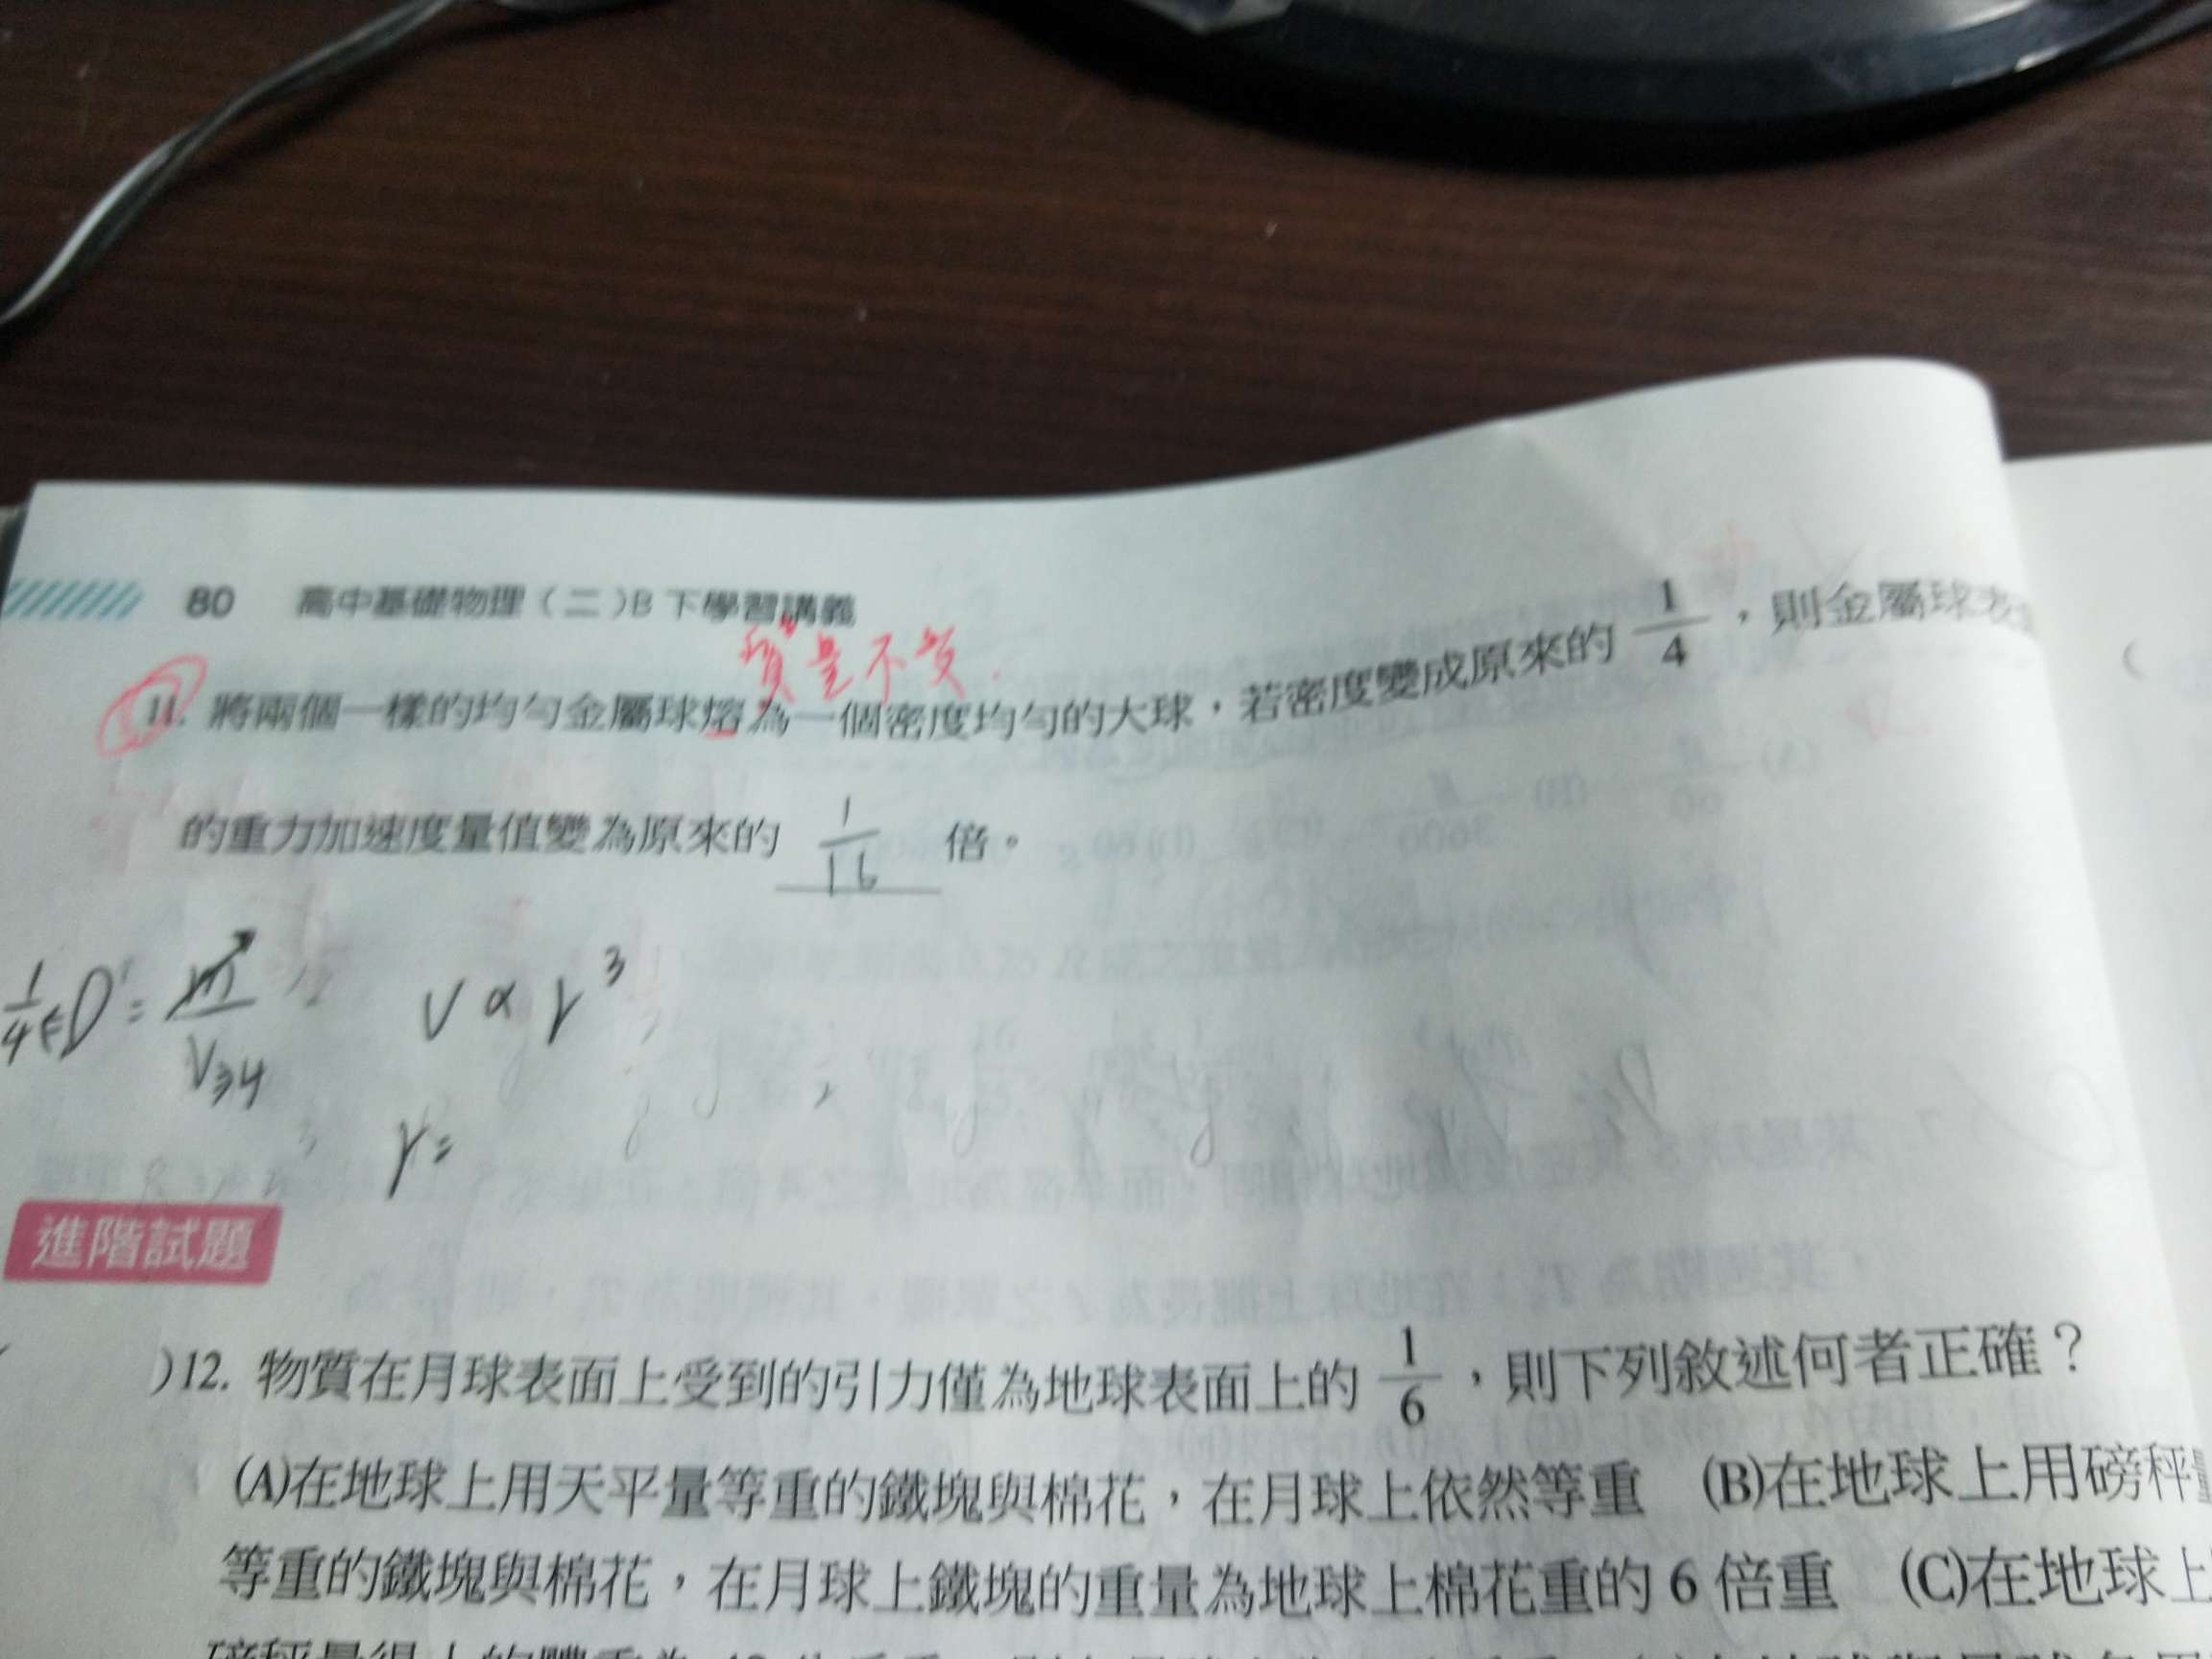 80 高中基礎物理（二）B 下學習講義
質量不變.
11. 將兩個一樣的均勻金屬球熔為一個密度均勻的大球，若密度變成原來的 1/4，則金屬球表
的重力加速度量值變為原來的 1/16 倍。
V ∝ r³
r=
進階試題
)12. 物質在月球表面上受到的引力僅為地球表面上的 1/6，則下列敘述何者正確？
(A)在地球上用天平量等重的鐵塊與棉花，在月球上依然等重 (B)在地球上用磅秤量
等重的鐵塊與棉花，在月球上鐵塊的重量為地球上棉花重的 6 倍重 (C)在地球上